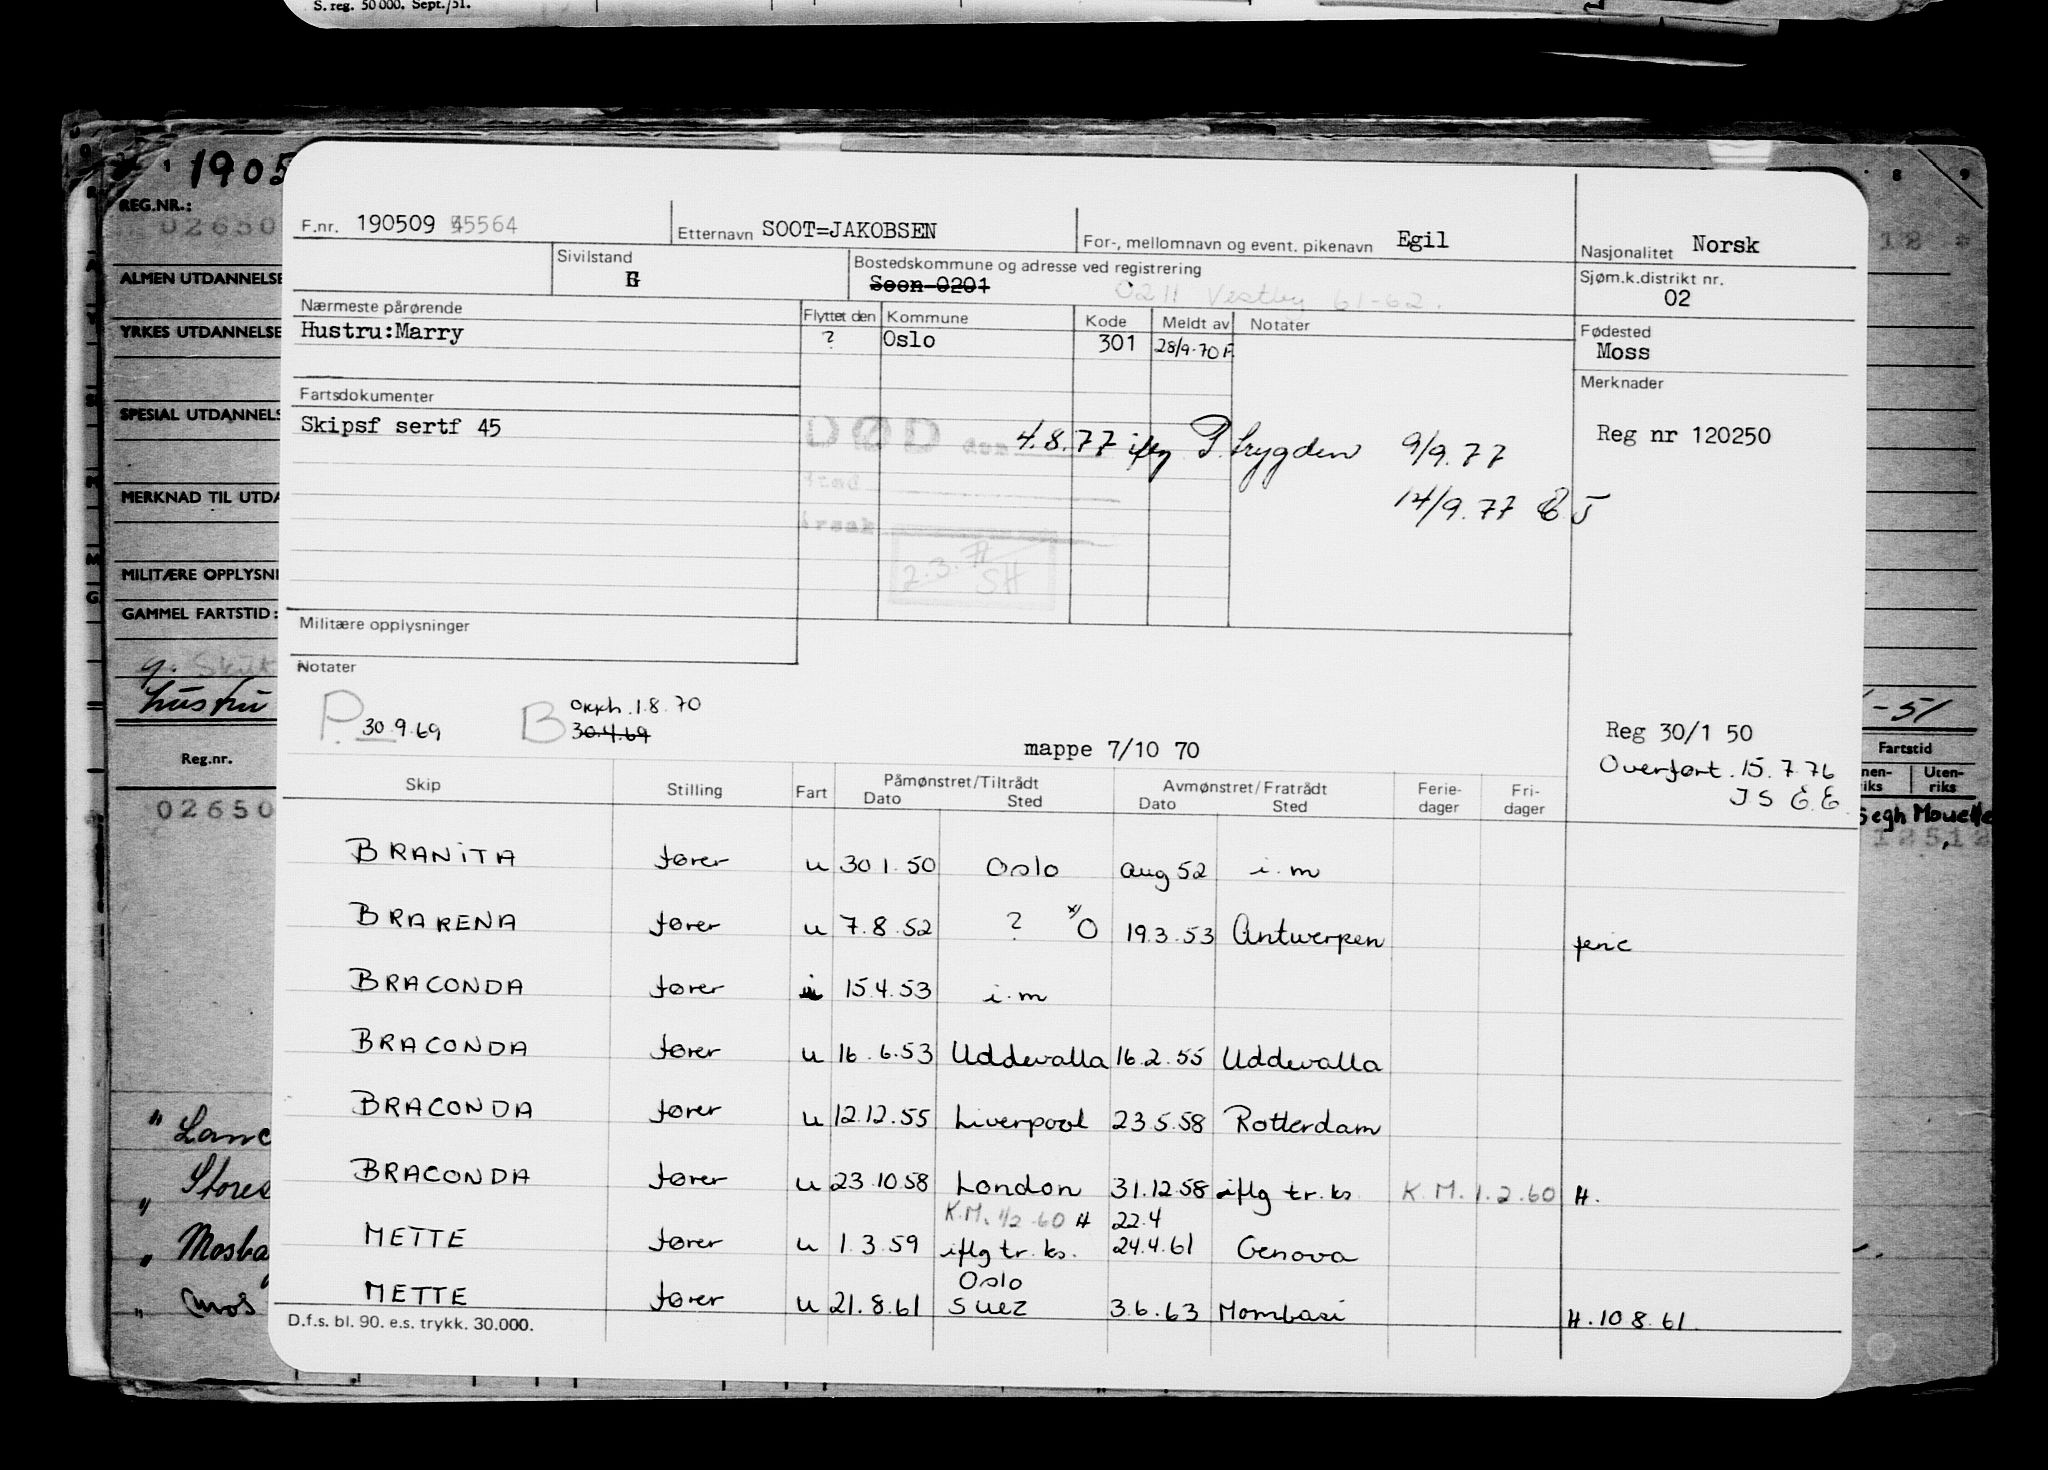 S. reg. 50 000. Sept./51.
1905
REG.NR.:
02650
ALMEN UTDANNELSE
YRKES UTDANNELSE
SPESIAL UTDANNELS
MERKNAD TIL UTDA
MILITÆRE OPPLYSNI
GAMMEL FARTSTID:
hustru
Reg.nr.
02650
" Lanc
" Stores
" Mosba
"
F.nr. 190509 45564
Etternavn SOOT=JAKOBSEN
For-, mellomnavn og event. pikenavn Egil
Nasjonalitet Norsk
Sivilstand
G
Bostedskommune og adresse ved registrering
Soon 0201 0211 Vestby 61-62.
Sjøm.k.distrikt nr.
02
Nærmeste pårørende
Hustru:Marry
Flyttet den Kommune Kode Meldt av Notater
? Oslo 301 28/9.70 F.
Fødested
Moss
Merknader
Reg nr 120250
Fartsdokumenter
Skipsf sertf 45
DØD den 4.8.77 iflg P.trygden 9/9.77
Sted
Årsak
14/9.77 E J
2.3.71
SH
Militære opplysninger
Notater
P. 30.9.69
B okkh.1.8.70
30.4.69
mappe 7/10 70
Reg 30/1 50
Overført. 15.7.76
JS E.E.
Skip Stilling Fart Påmønstret/Tiltrådt Avmønstret/Fratrådt Ferie- Fri-
Dato Sted Dato Sted dager dager
BRANITA fører u 30 1.50 Oslo Aug 52 i.m
BRARENA fører u 7.8.52 ? x) O 19.3.53 Antwerpen feric
BRACONDA fører 15.4.53 i.m
BRACONDA fører u 16.6.53 Uddevalla 16.2.55 Uddevalla
BRACONDA fører u 12.12.55 Liverpool 23 5.58 Rotterdam
BRACONDA fører u 23.10.58 London 31.12.58 iflg tr.ks. K.M.1.2.60 H.
K.M. 1/2.60 H 22.4
METTE fører u 1.3.59 iflg tr.ks. 24.4.61 Genova
Oslo
METTE fører u 21.8.61 Suez 3.6.63 Mombasi H.10 8.61.
D.f.s. bl. 90. e.s. trykk. 30.000.
8 9
12
-51
Fartstid
nen-
iks
Uten-
riks
Segh Mouette
125,12